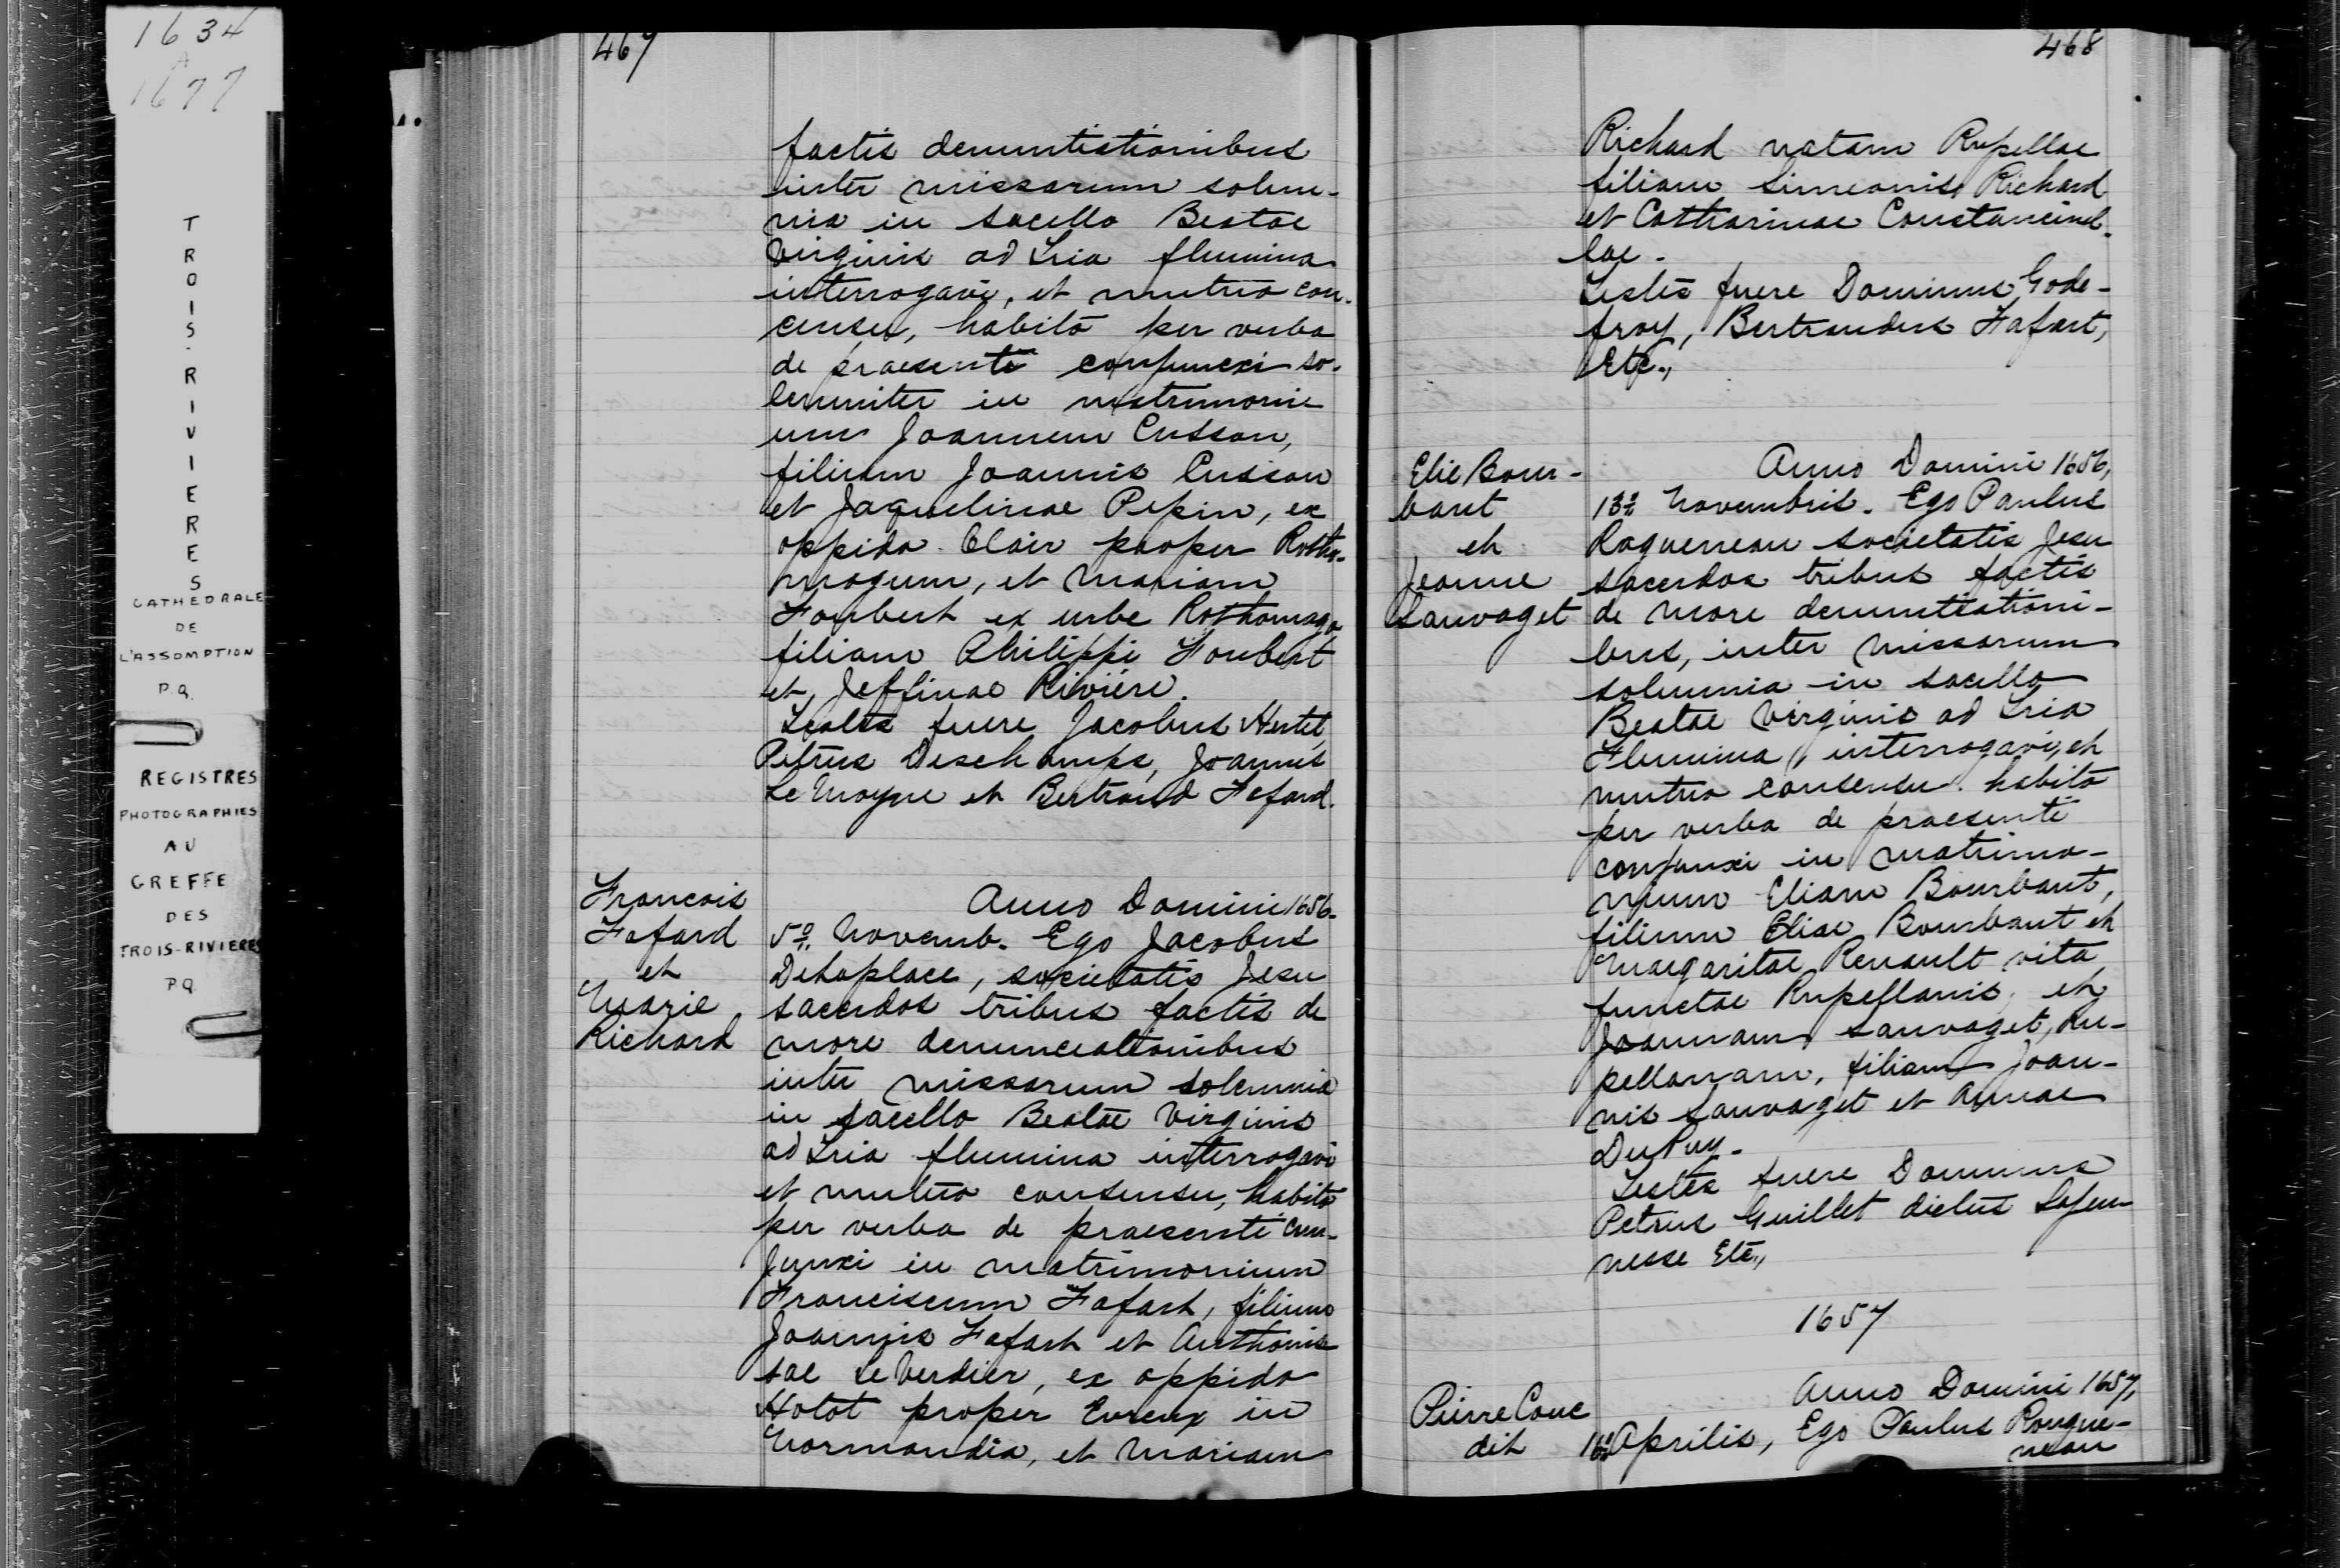 1634
A
1677
TROIS-RIVIERES
CATHEDRALE
DE
L'ASSOMPTION
P.Q.
REGISTRES
PHOTOGRAPHIES
AU
GREFFE
DES
TROIS-RIVIERES
PQ
467
factis denuntiationibus
inter missarum solem-
nia in sacello Beatae
Virginis ad tria flumina
interrogavi, et mutuo con-
censu, habito per verba
de praesenti conjuncxi so-
lemniter in matrimoni
um Joannem Cusson,
filium Joannis Cusson
et Jaquelinae Pepin, ex
oppido Clair prope Rotho-
magum, et Mariam
Foubert ex urbe Rothomago
filiam Philippi Foubert
et Jeffinae Rivière.
Testes fuere Jacobus Hertel,
Petrus Deschamps, Joannes
Le Moyne et Bertrand Fafard.
Francois
Fafard
et
Marie
Richard
Anno Domini 1656.
5º. Novemb. Ego Jacobus
Delaplace, societatis Jesu
sacerdos tribus factis de
more denunciationibus
inter missarum solemnia
in sacello Beatae Virginis
ad tria flumina interrogavi
et mutuo consensu, habito
per verba de praesenti con-
junxi in matrimonium
Franciscum Fafart, filium
Joannis Fafart et Anthonis
sae Le Verdier, ex oppido
Hotot proper Evreux in
Normandia, et Mariam
468
Richard natam Rupellae
filiam Simeonis Richard
et Catharinae Constancinel-
lae.
Testes fuere Dominus Gode-
froy, Bertrandus Fafart,
etc.,
Elie Bour-
baut
et
Jeanne
Sauvaget
Anno Domini 1656,
13º Novembris. Ego Paulus
Ragueneau societatis Jesu
sacerdos tribus factis
de more denuntiationi-
bus, inter missarum
solemnia in sacello
Beatae Virginis ad tria
Flumina, interrogavi, et
mutuo consensu habito
per verba de praesenti
conjunxi in matrimo-
nium Eliam Bourbaut,
filium Eliae Bourbaut et
Margaritae Renault vita
functae Rupellanis, et
Joannam Sauvaget, Ru-
pellanam, filiam Joan-
nis Sauvaget et Annae
DuPuy.
Testes fuere Dominus
Petrus Guillet dictus Lajeu-
nesse etc.,
1657
Pierre Couc
dit
Anno Domini 1657,
16º Aprilis, Ego Paulus Rague-
neau